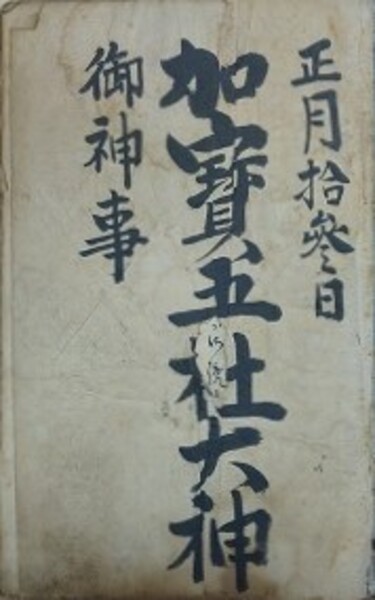 正月拾參日
加寶五社大神
御神事